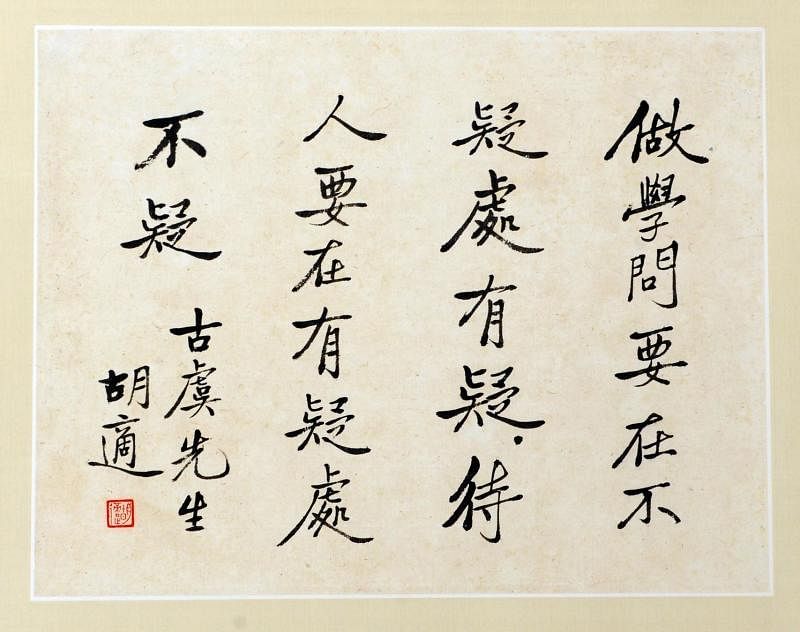 做學問要在不
疑處有疑，待
人要在有疑處
不疑
古虞先生
胡適